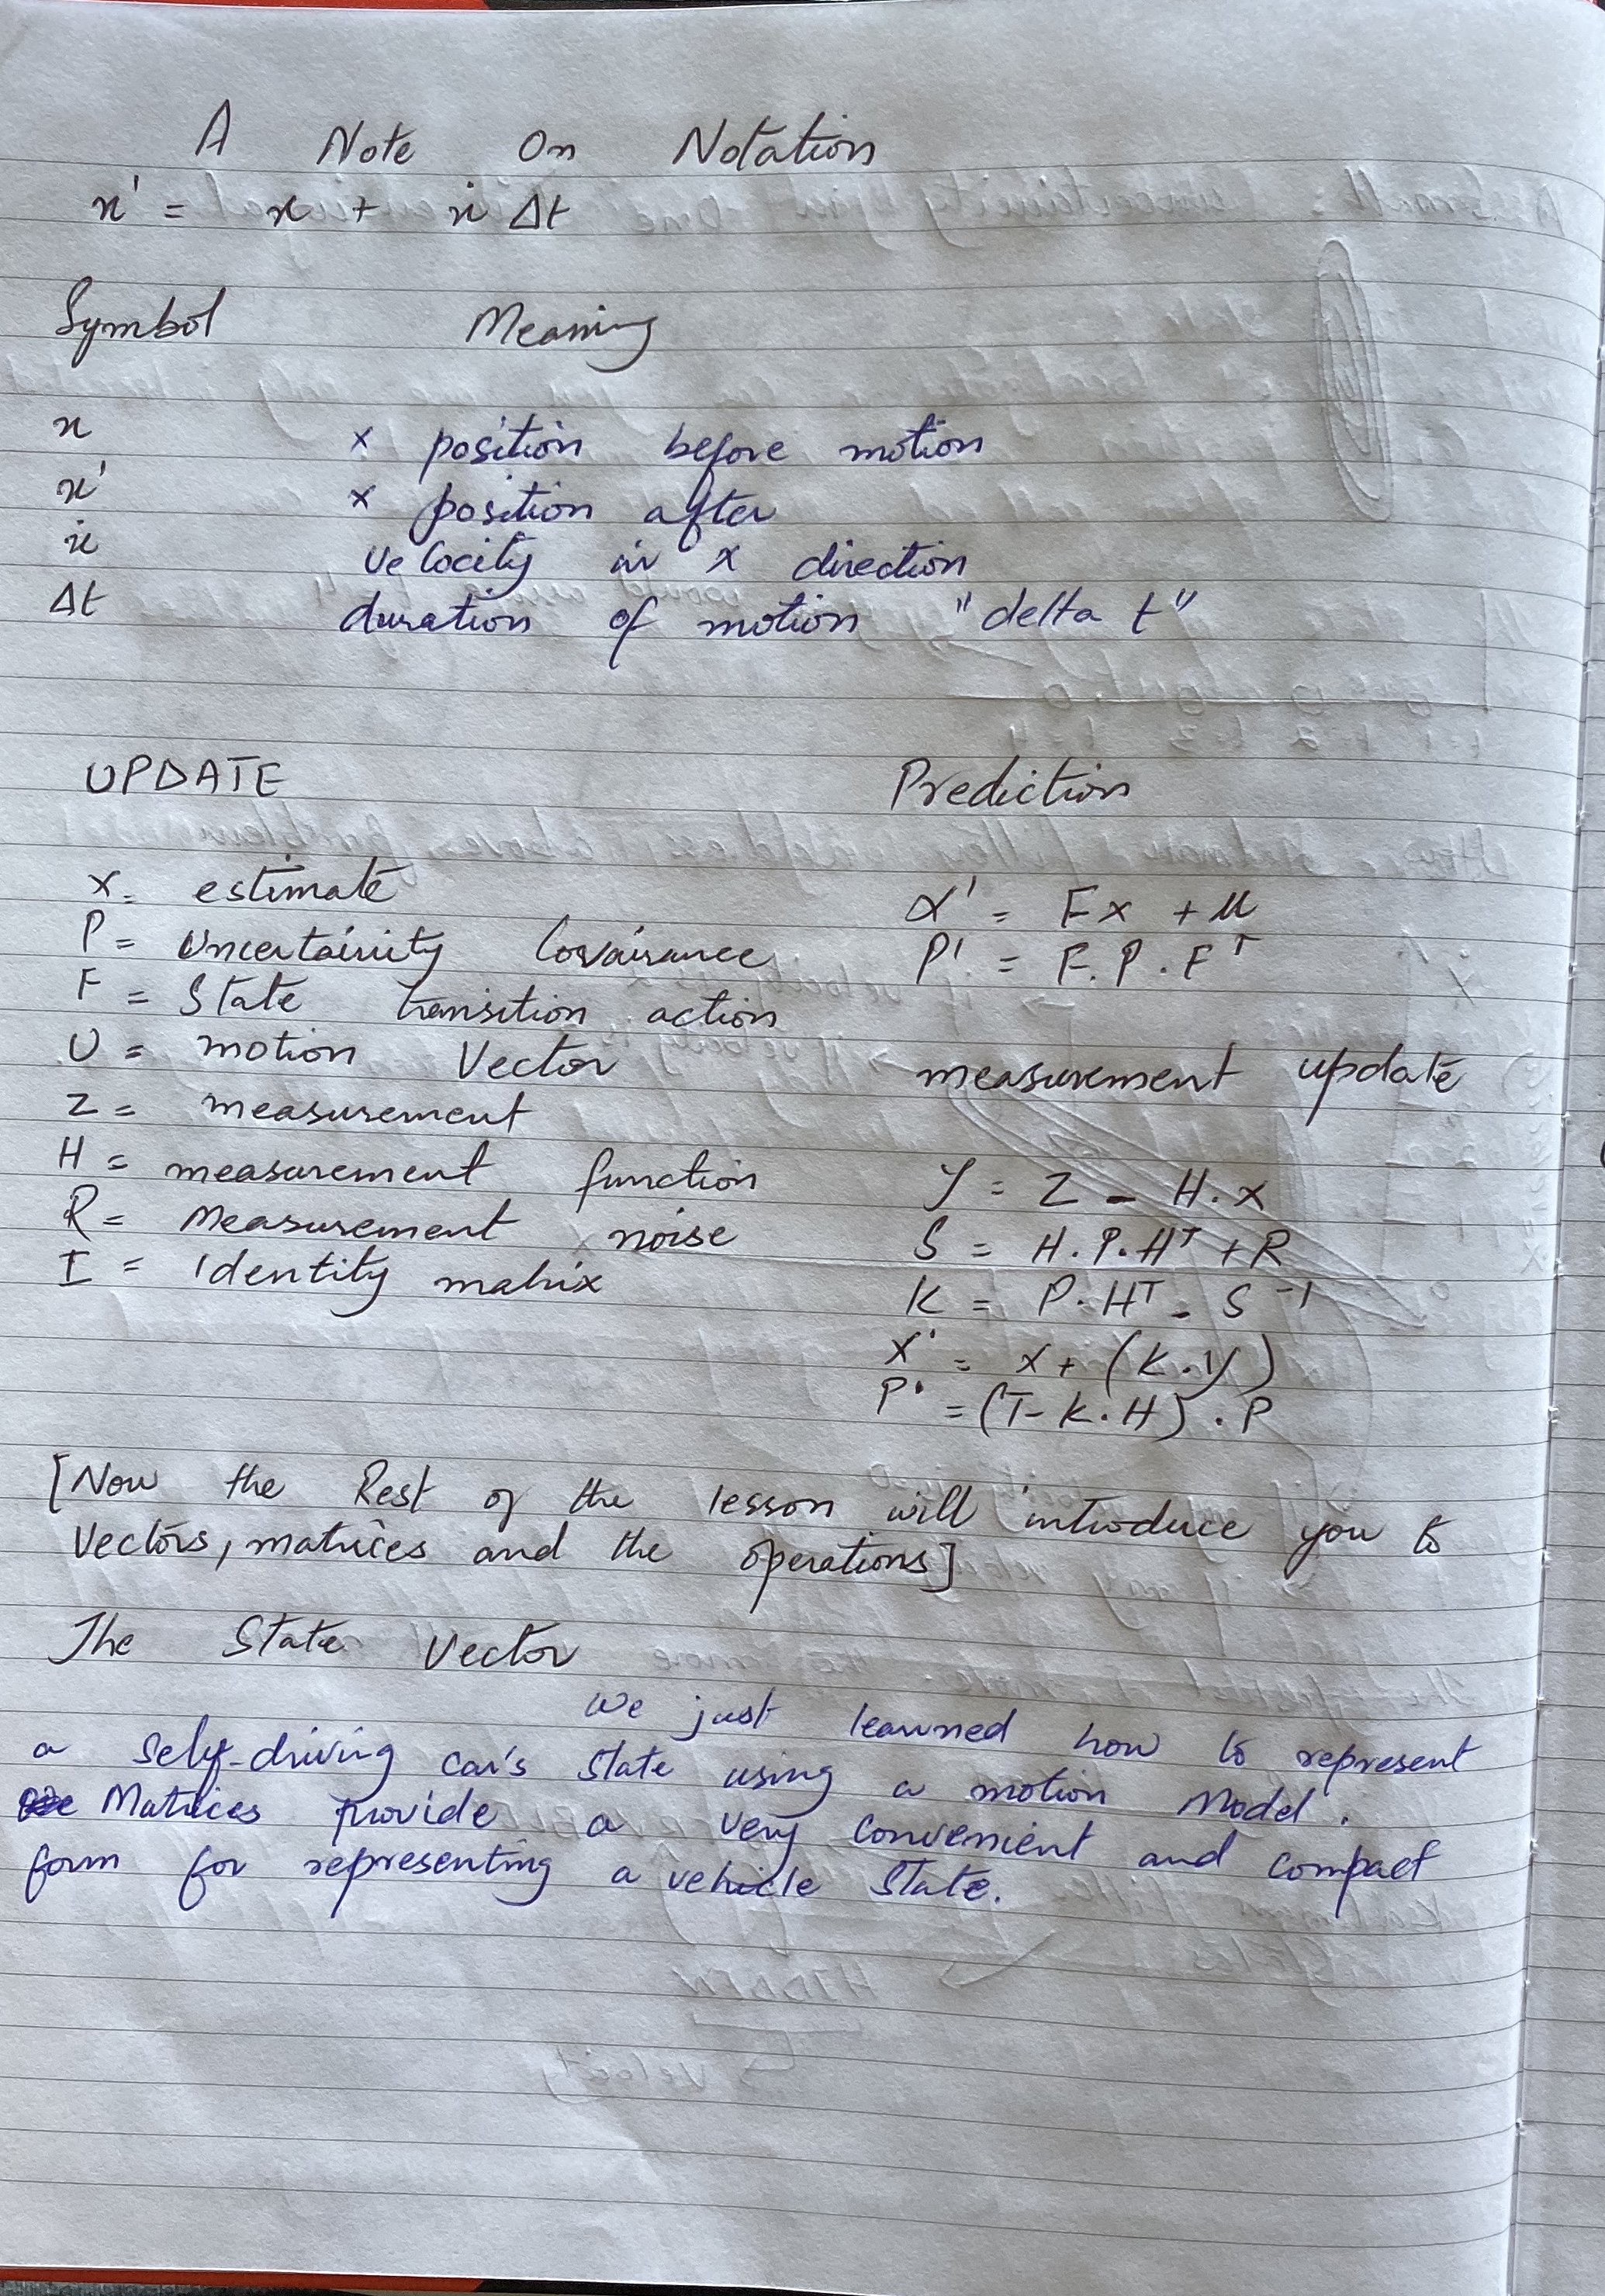 A Note On Notation
x' = x + ẋ Δt
Symbol Meaning
x x position before motion
x' x position after
ẋ velocity in x direction
Δt duration of motion "delta t"
UPDATE
x = estimate
P = Uncertainity Covairance
F = State transition action
U = motion Vector
Z = measurement
H = measurement function
R = Measurement noise
I = Identity matrix
Prediction
x' = Fx + u
P' = F.P.Fᵀ
measurement update
Y = Z - H.x
S = H.P.Hᵀ + R
K = P.Hᵀ - S⁻¹
X' = X + (K.Y)
P' = (I - K.H).P
[Now the Rest of the lesson will introduce you to
Vectors, matrices and the operations]
The State Vector
We just learned how to represent
a self-driving car's state using a motion Model.
Matrices provide a very convenient and compact
form for representing a vehicle State.